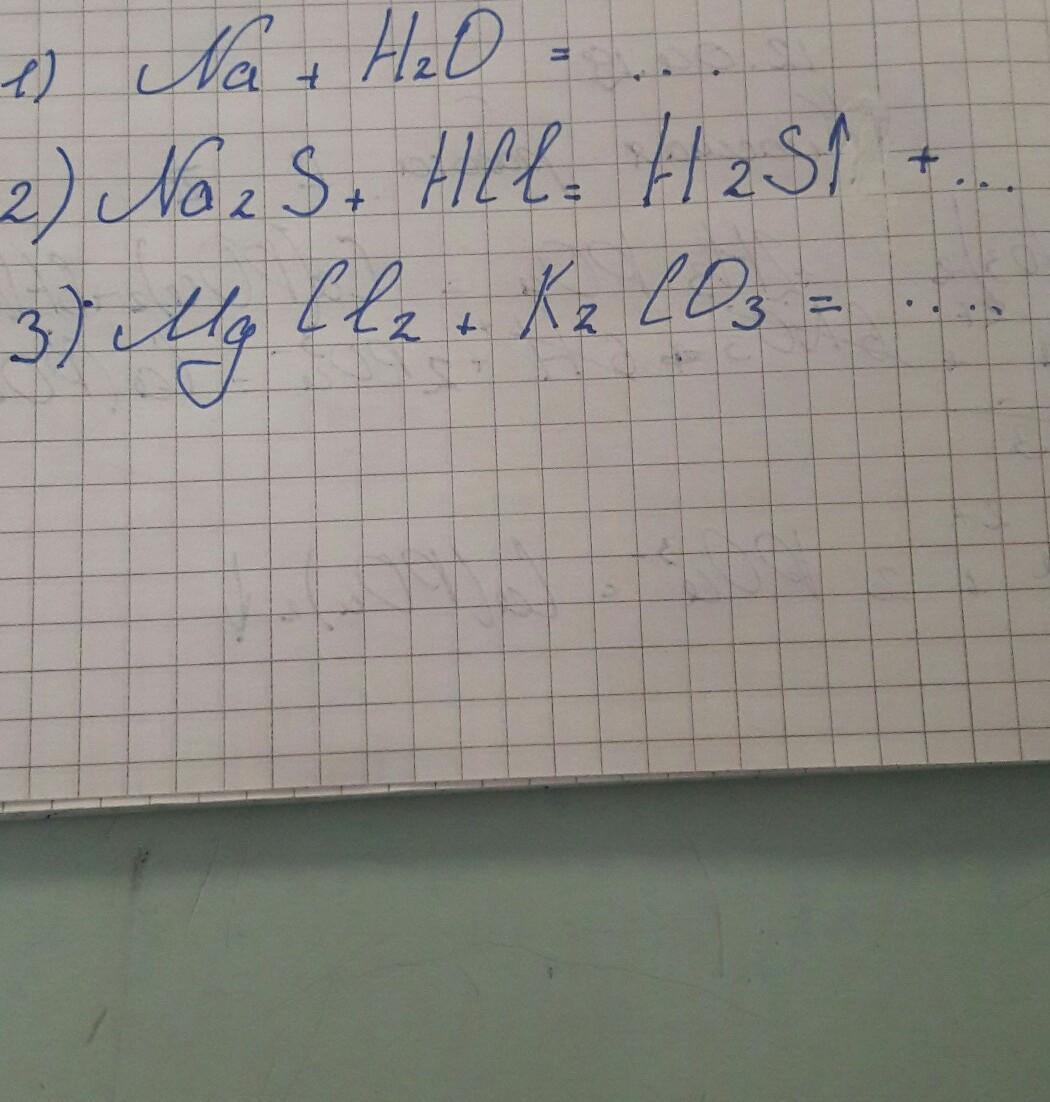 1) Na + H₂O = ...
2) Na₂S + HCl = H₂S↑ + ...
3) MgCl₂ + K₂CO₃ = ....